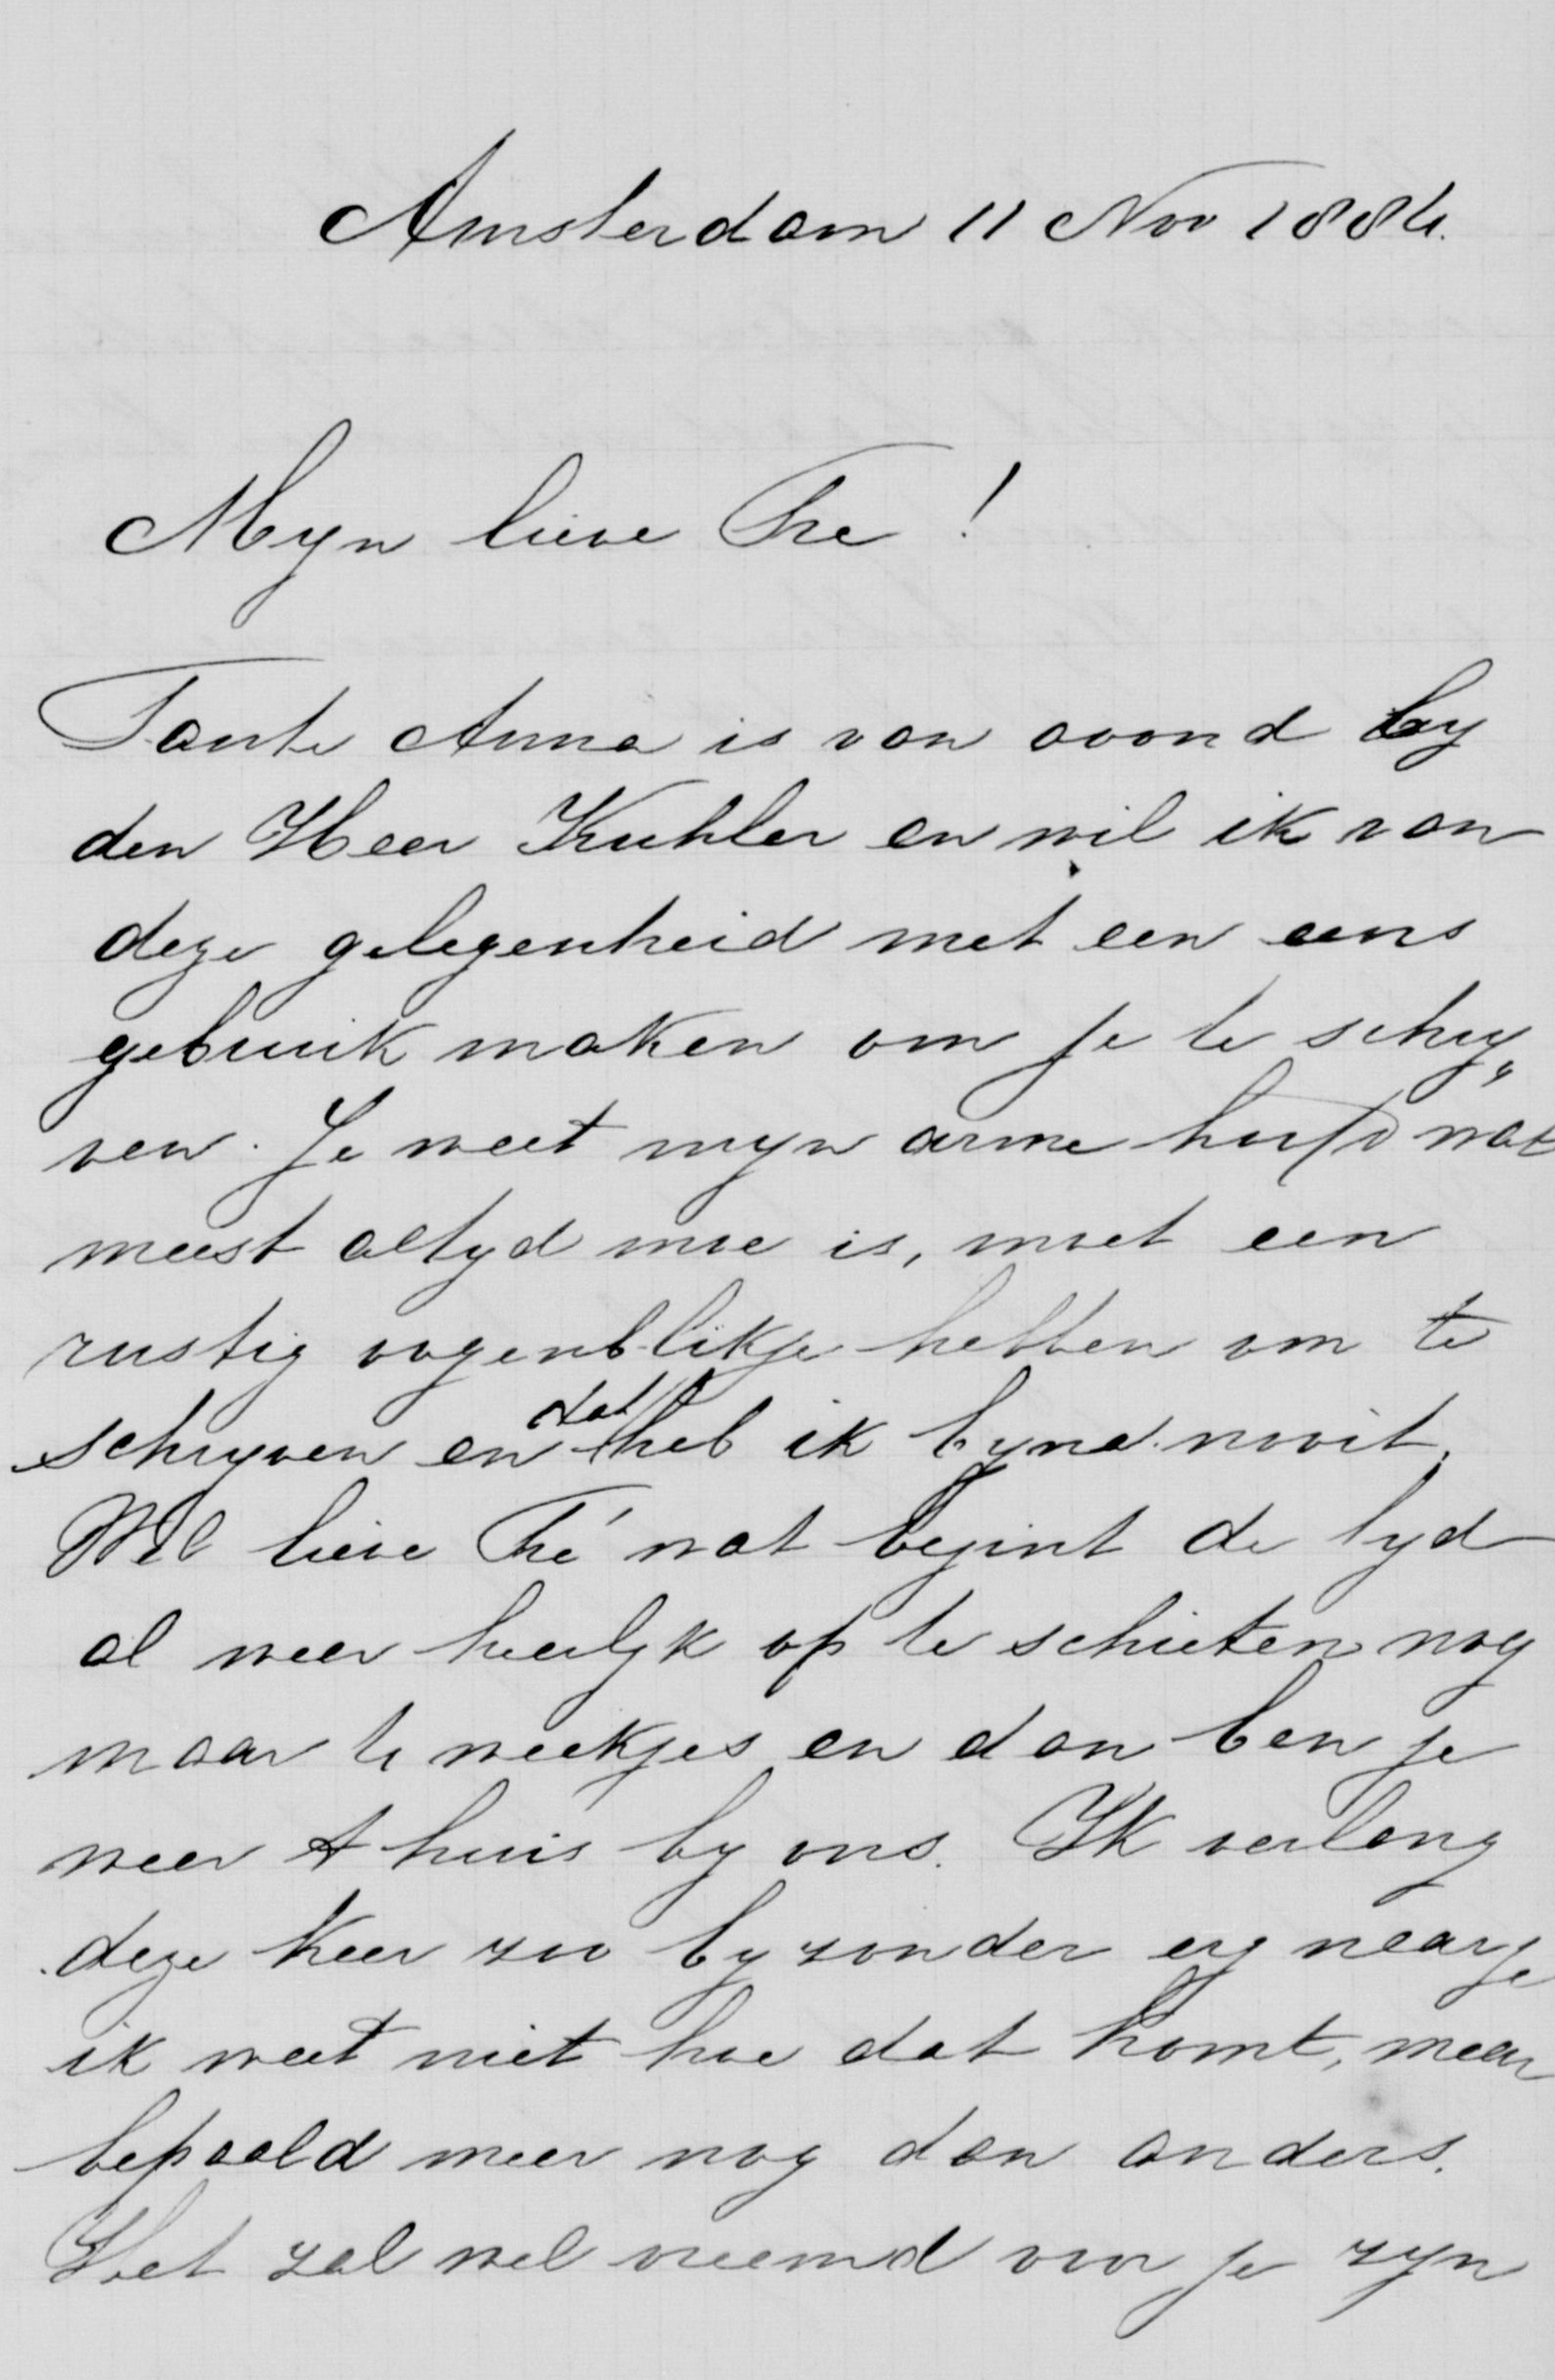 Amsterdam 11 Nov 1884.
Myn lieve Thé!
Tante Anna is van avond by
den Heer Kuhler en wil ik van
deze gelegenheid met een eens
gebruik maken om je te schry„
ven. Je weet myn arme hoofd wat
meest altyd moe is, moet een
rustig oogenblikje hebben om te
schryven en dat heb ik byna nooit.
Wel lieve Thé wat begint de tyd
al weer heerlyk op te schieten nog
maar 4 weekjes en dan ben je
weer t huis by ons. Ik verlang
deze keer zoo byzonder erg naar je
ik weet niet hoe dat komt, maar
bepaald meer nog dan anders.
Het zal wel vreemd voor je zyn